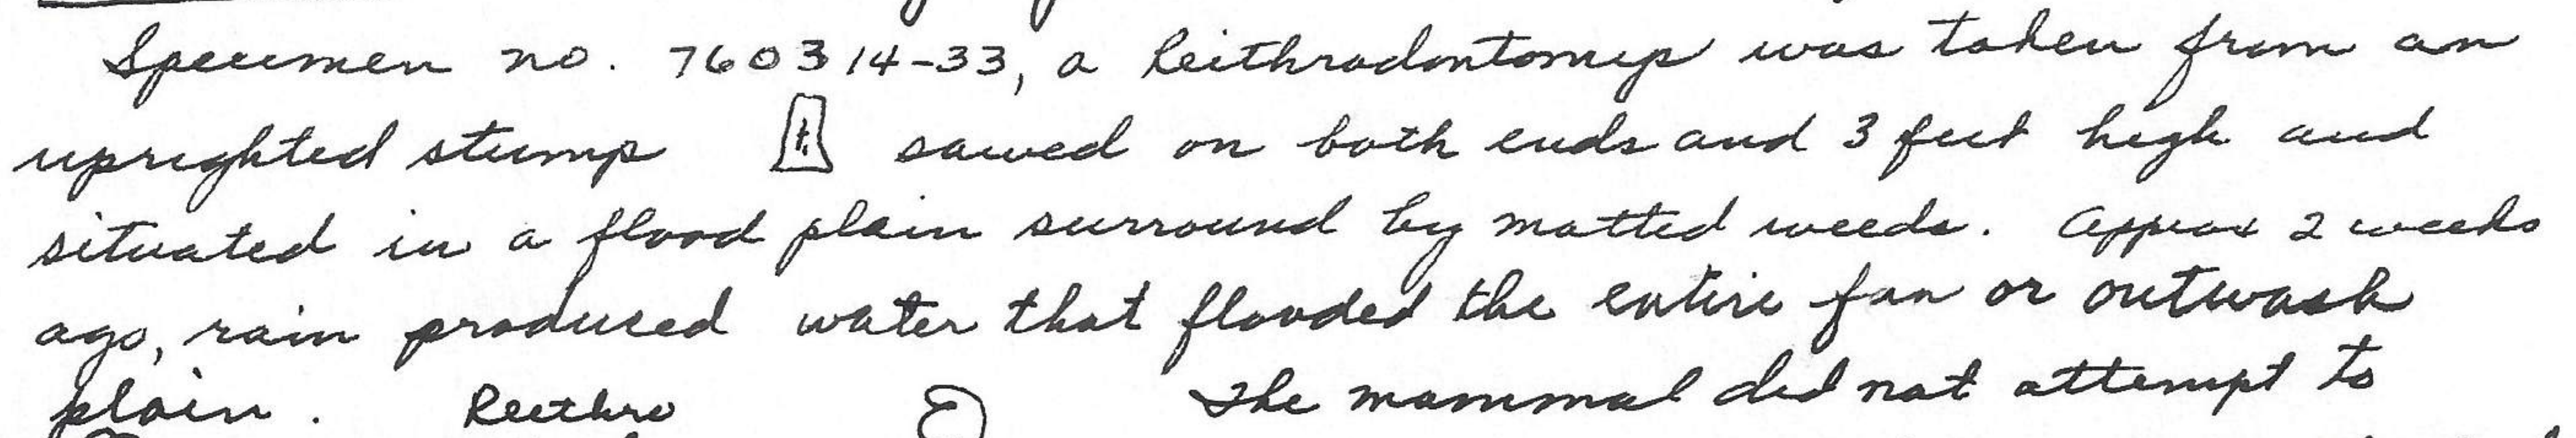 Specimen no. 760314-33, a Reithrodontomys was taken from an
uprighted stump sawed on both ends and 3 feet high and
situated in a flood plain surround by matted weeds. Approx 2 weeks
ago, rain produced water that flooded the entire fan or outwash
plain. Reithro The mammal did not attempt to